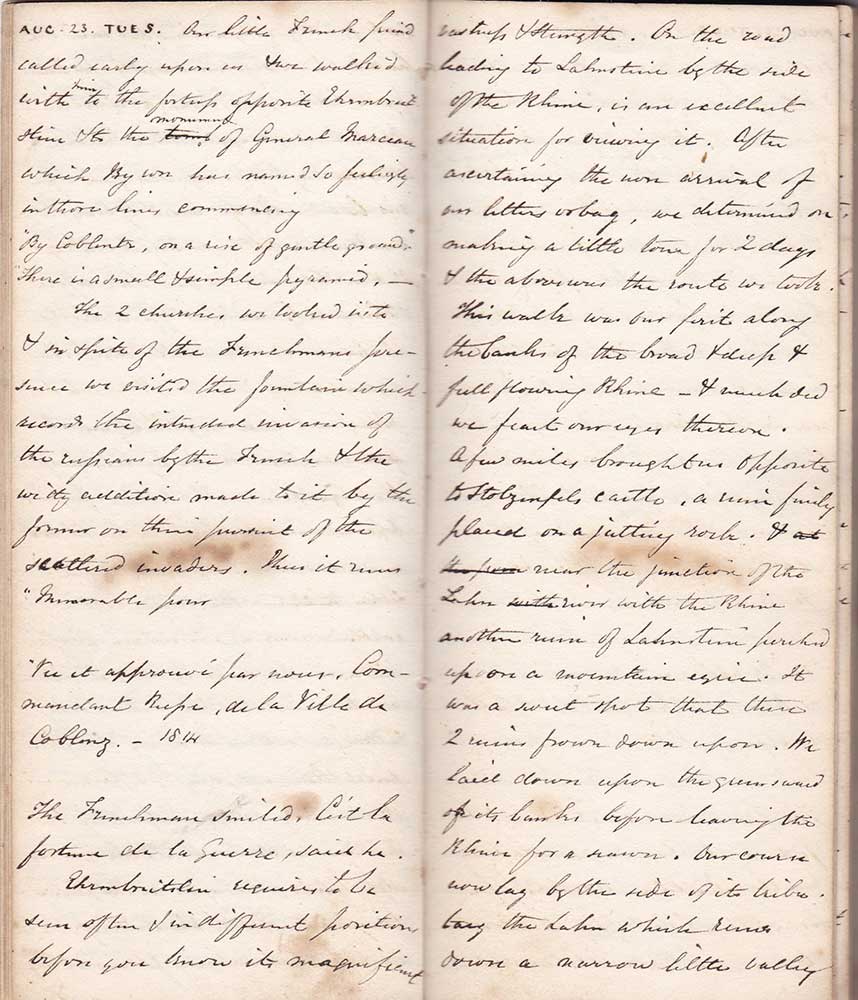 AUG. 23. TUES. Our little French friend
called early upon us & we walked
with him to the fortress opposite Ehrenbreit
stein & to the tomb monument of General Marceau
which Byron has named so feelingly
in those lines commencing
"By Coblentz, on a rise of gentle ground,"
"There is a small & simple pyramid, —
The 2 churches we looked into
& in spite of the Frenchmans pre-
sence we visited the fountain which
records the intended invasion of
the russians by the French & the
witty addition made to it by the
former on their pursuit of the
scattered invaders. Thus it runs
"Memorable pour
"Vu et approuvé par nous, Com-
mandant Russe, de la Ville de
Coblenz. — 1814
The Frenchman smiled, C'ést la
fortune de la Guerre, said he.
Ehrenbreitstein requires to be
seen often & in different positions
before you know its magnificent
vastness & strength. On the road
leading to Lahnstein by the side
of the Rhine, is an excellent
situation for viewing it. After
ascertaining the non arrival of
our letters or bag, we determined on
making a little tour for 2 days
& the above was the route we took.
This walk was our first along
the banks of the broad & deep &
full flowing Rhine — & much did
we feast our eyes thereon.
A few miles brought us opposite
to Stolzenfels castle, a ruin finely
placed on a jutting rock. & at
the junc near the junction of the
Lahn with river with the Rhine
another ruin of Lahnstein perched
up on a mountain egrie. It
was a sweet spot that these
2 ruins frown down upon. We
laid down upon the greensward
of its banks before leaving the
Rhine for a season. Our course
now lay by the side of its tribu-
tary the Lahn which runs
down a narrow little valley